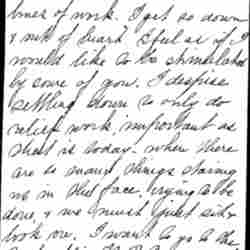 lines of work. I get so down
& sick of heart I feel as if I
would like to be stimulated
by some of you. I despise
settling down to only do
relief work, important as
that is today. when there
are so many things staring
me in the face, crying to be
done, & we must just sit &
look on. I want to go to the